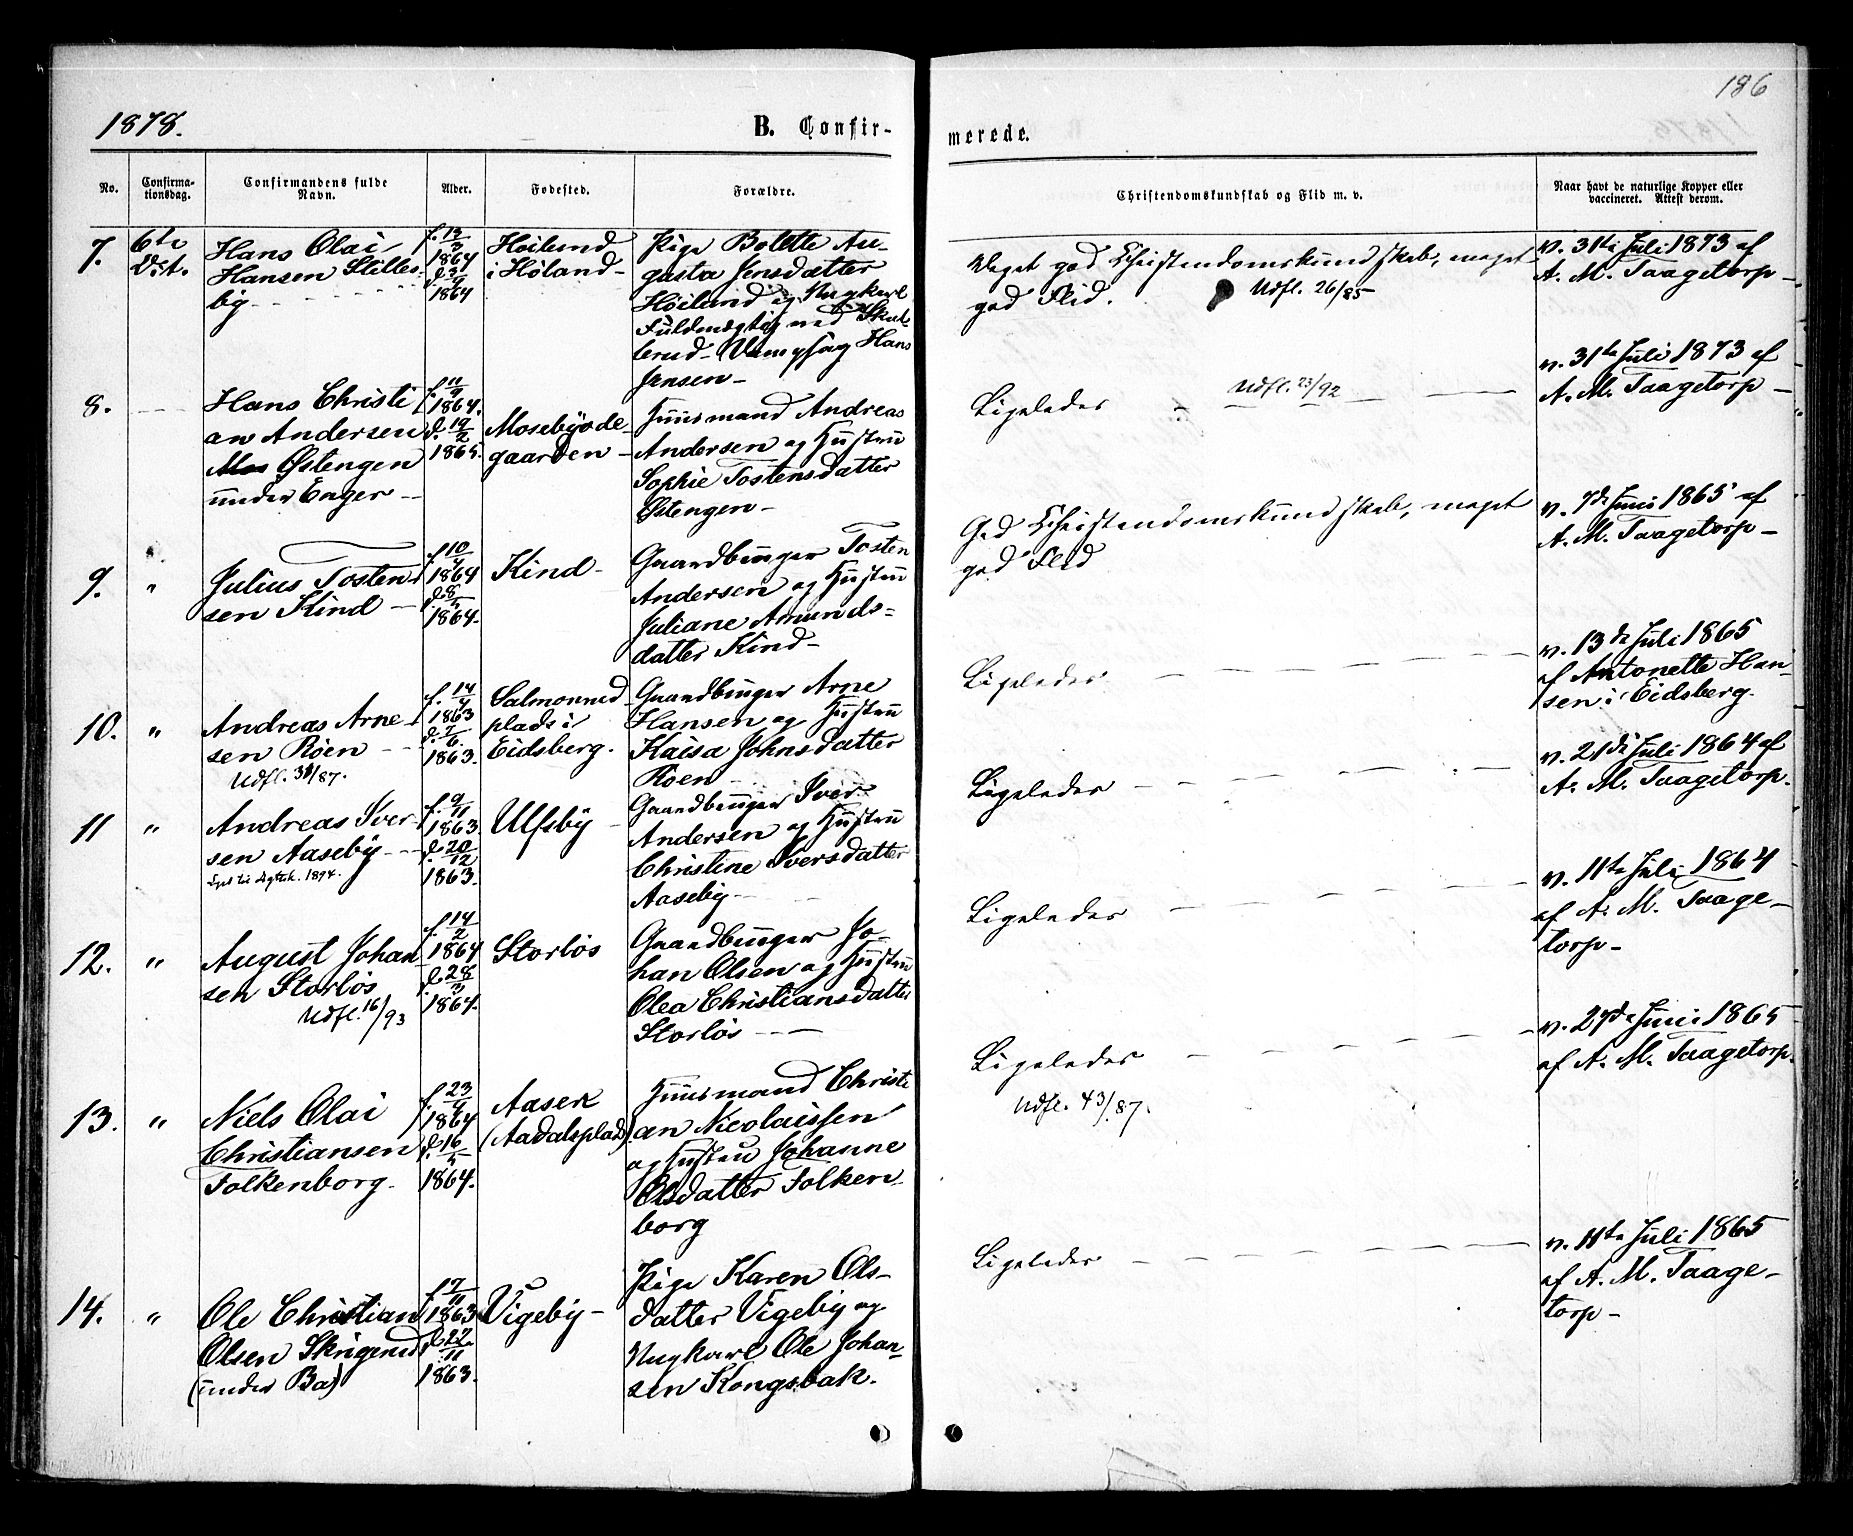 186
1878.
B. Confir-
merede.
No.
Confirma-
tionsdag.
Confirmandens fulde
Navn.
Alder.
Fødested.
Forældre.
Christendomskundskab og Flid m. v.
Naar havt de naturlige Kopper eller
vaccineret. Attest derom.
7.
6te
Hans Olai
Hansen Stilles-
by
1864
1864
Høilund
i Høland
Pige Bolette Au-
gusta Jensdatter
Høilund og Ungkarl
Fuldmægtig ved
Hans
Jensen
Meget god Christendomskundskab, meget
god Flid.
Udfl. 26/85
v. 31te Juli 1873 af
A. M. Taagetorp
8.
Hans Christi
an Andersen
Østengen
under Enger
f. 11/9
1864.
d. 19/2
1865.
Mosebyøde-
gaarden
Huusmand Andreas
Andersen og Hustru
Sophie Tostensdatter
Østengen
Ligeledes
Udfl. 23/92
v. 31te Juli 1873 af
A. M. Taagetorp
9.
"
Julius Tosten-
sen Kind
1864
1864.
Kind
Gaardbruger Tosten
Andersen og Hustru
Juliane Amunds-
datter Kind
God Christendomskundskab, meget
god Flid
v. 7de Juni 1865 af
A. M. Taagetorp
10.
"
Andreas Arne-
sen Røen
Udfl. 31/87.
1863
1863.
Salmonrud
plads i
Eidsberg.
Gaardbruger Arne
Hansen og Hustru
Kaisa Johnsdatter
Røen
Ligeledes
v. 13de Juli 1865
af Antonette Han-
sen i Eidsberg.
11
"
Andreas Iver-
sen Aaseby
1894.
f. 9/11
1863.
d. 20/12
1863.
Ulfsby
Gaardbruger Iver
Andersen og Hustru
Christine Iversdatter
Aaseby
Ligeledes
v. 21de Juli 1864 af
A. M. Taagetorp.
12.
"
August Johan
sen Storløs
Udfl. 16/93
f. 14/2
1864
d. 28/3
1864.
Storløs
Gaardbruger Jo-
han Olsen og Hustru
Olea Christiansdatter
Storløs
Ligeledes
v. 11te Juli 1864
af A. M. Taage-
torp
13.
"
Niels Olai
Christiansen
Folkenborg.
1864
d. 16/5
1864.
Aaser
(Aadalsplads)
Huusmand Christi
an Nicolaissen
og Hustru Johanne
Olsdatter Folken
borg
Ligeledes
Udfl. 43/87.
v. 27de Juni 1865
af A. M. Taagetorp.
14.
"
Ole Christian
Olsen Skrigerud
(under Ba)
f. 17/11
1863
d. 22/11
1863.
Vigeby
Pige Karen Ols-
datter Vigeby og
Ungkarl Ole Johan-
sen Kongsbak.
Ligeledes
v. 11te Juli 1865
af A. M. Taage-
torp